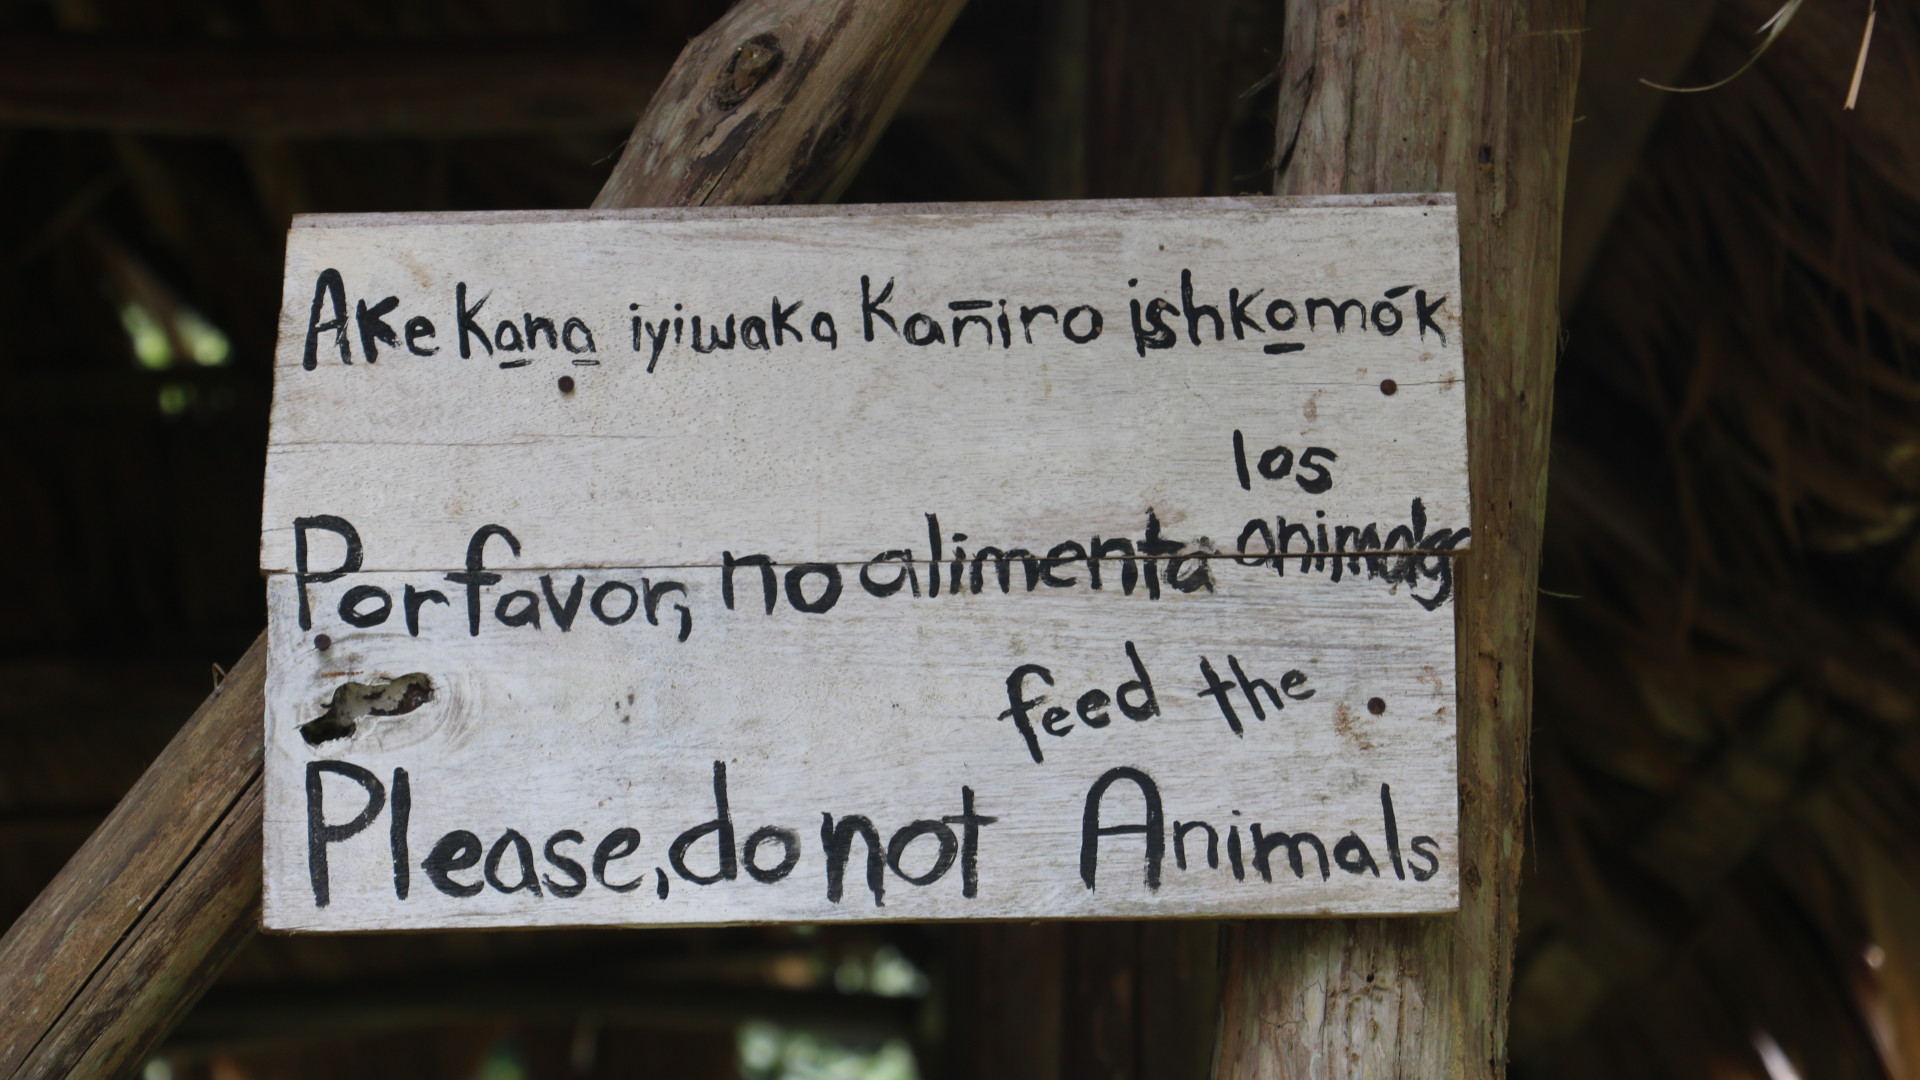 Ake ka̲na̲ iyiwaka Kan̄iro ishko̲mók
los
Por favor, no alimenta animales
feed the
Please, do not Animals